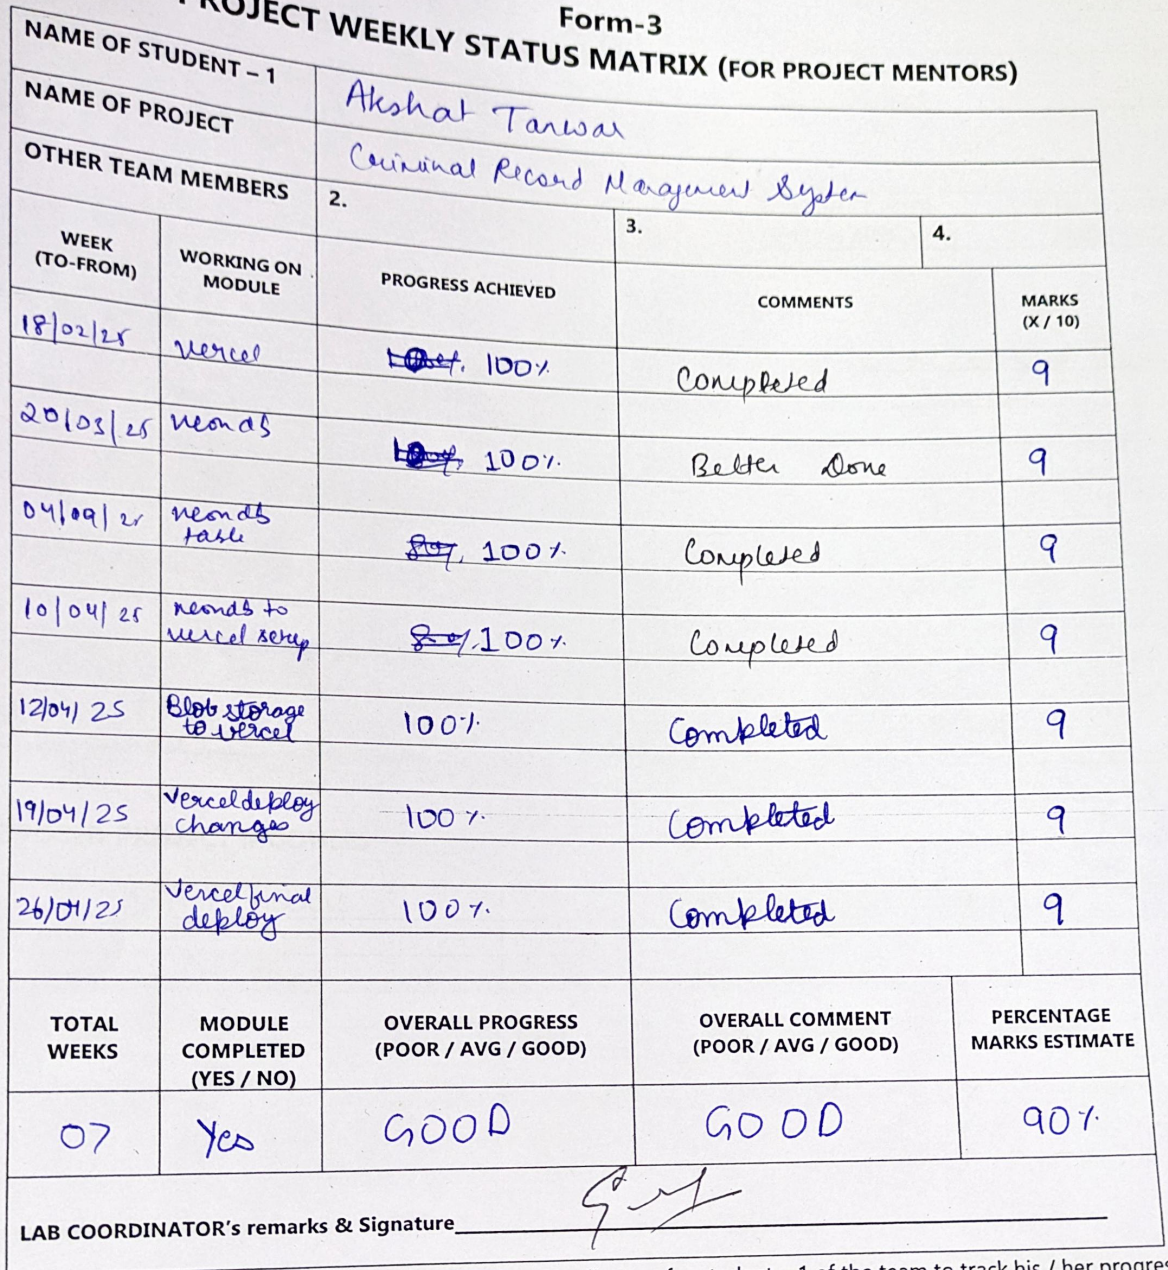 Form-3
PROJECT WEEKLY STATUS MATRIX (FOR PROJECT MENTORS)
NAME OF STUDENT – 1
Akshat Tanwar
NAME OF PROJECT
Criminal Record Management System
OTHER TEAM MEMBERS
2.
3.
4.
WEEK
(TO-FROM)
WORKING ON
MODULE
PROGRESS ACHIEVED
COMMENTS
MARKS
(X / 10)
18/02/25 vercel 100% Completed 9
20/03/25 neondb 100% Better Done 9
04/09/25 neondb
table
100% Completed 9
10/04/25 neondb to
vercel setup
100% Completed 9
12/04/25 Blob storage
to vercel
100% Completed 9
19/04/25 Vercel deploy
changes
100% Completed 9
26/04/25 Vercel final
deploy
100% Completed 9
TOTAL
WEEKS
MODULE
COMPLETED
(YES / NO)
OVERALL PROGRESS
(POOR / AVG / GOOD)
OVERALL COMMENT
(POOR / AVG / GOOD)
PERCENTAGE
MARKS ESTIMATE
07 Yes GOOD GOOD 90%
LAB COORDINATOR's remarks & Signature
1 of the team to track his / her progre